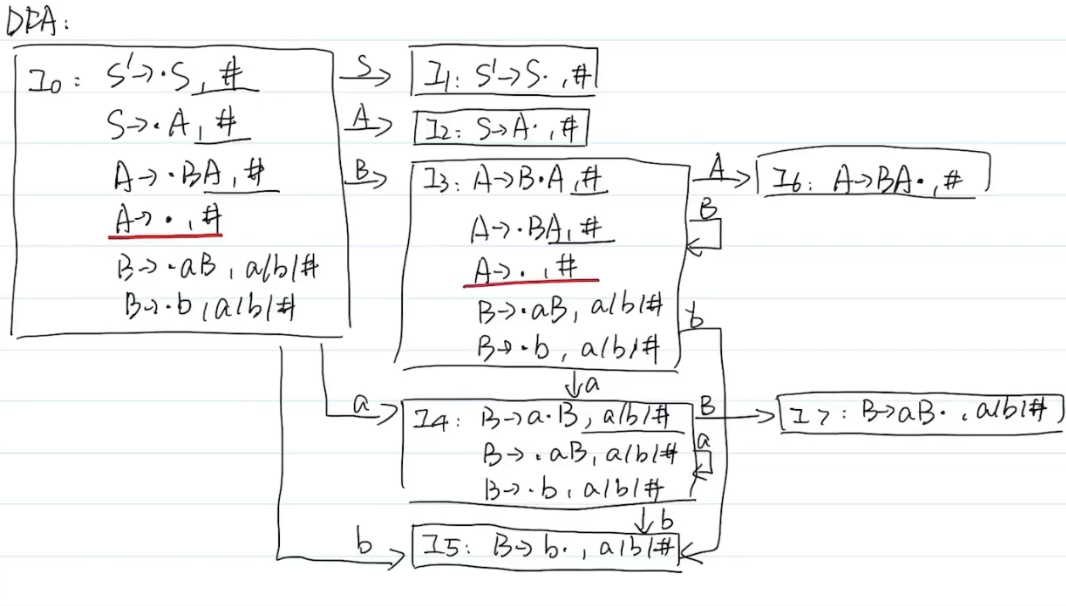 DFA:
I0: S'→·S, #
S→·A, #
A→·BA, #
A→·, #
B→·aB, a/b/#
B→·b, a/b/#
S
I1: S'→S·, #
A
I2: S→A·, #
B
I3: A→B·A, #
A→·BA, #
A→·, #
B→·aB, a/b/#
B→·b, a/b/#
A
I6: A→BA·, #
B
b
a
a
I4: B→a·B, a/b/#
B→·aB, a/b/#
B→·b, a/b/#
B
I7: B→aB·, a/b/#
a
b
b
I5: B→b·, a/b/#